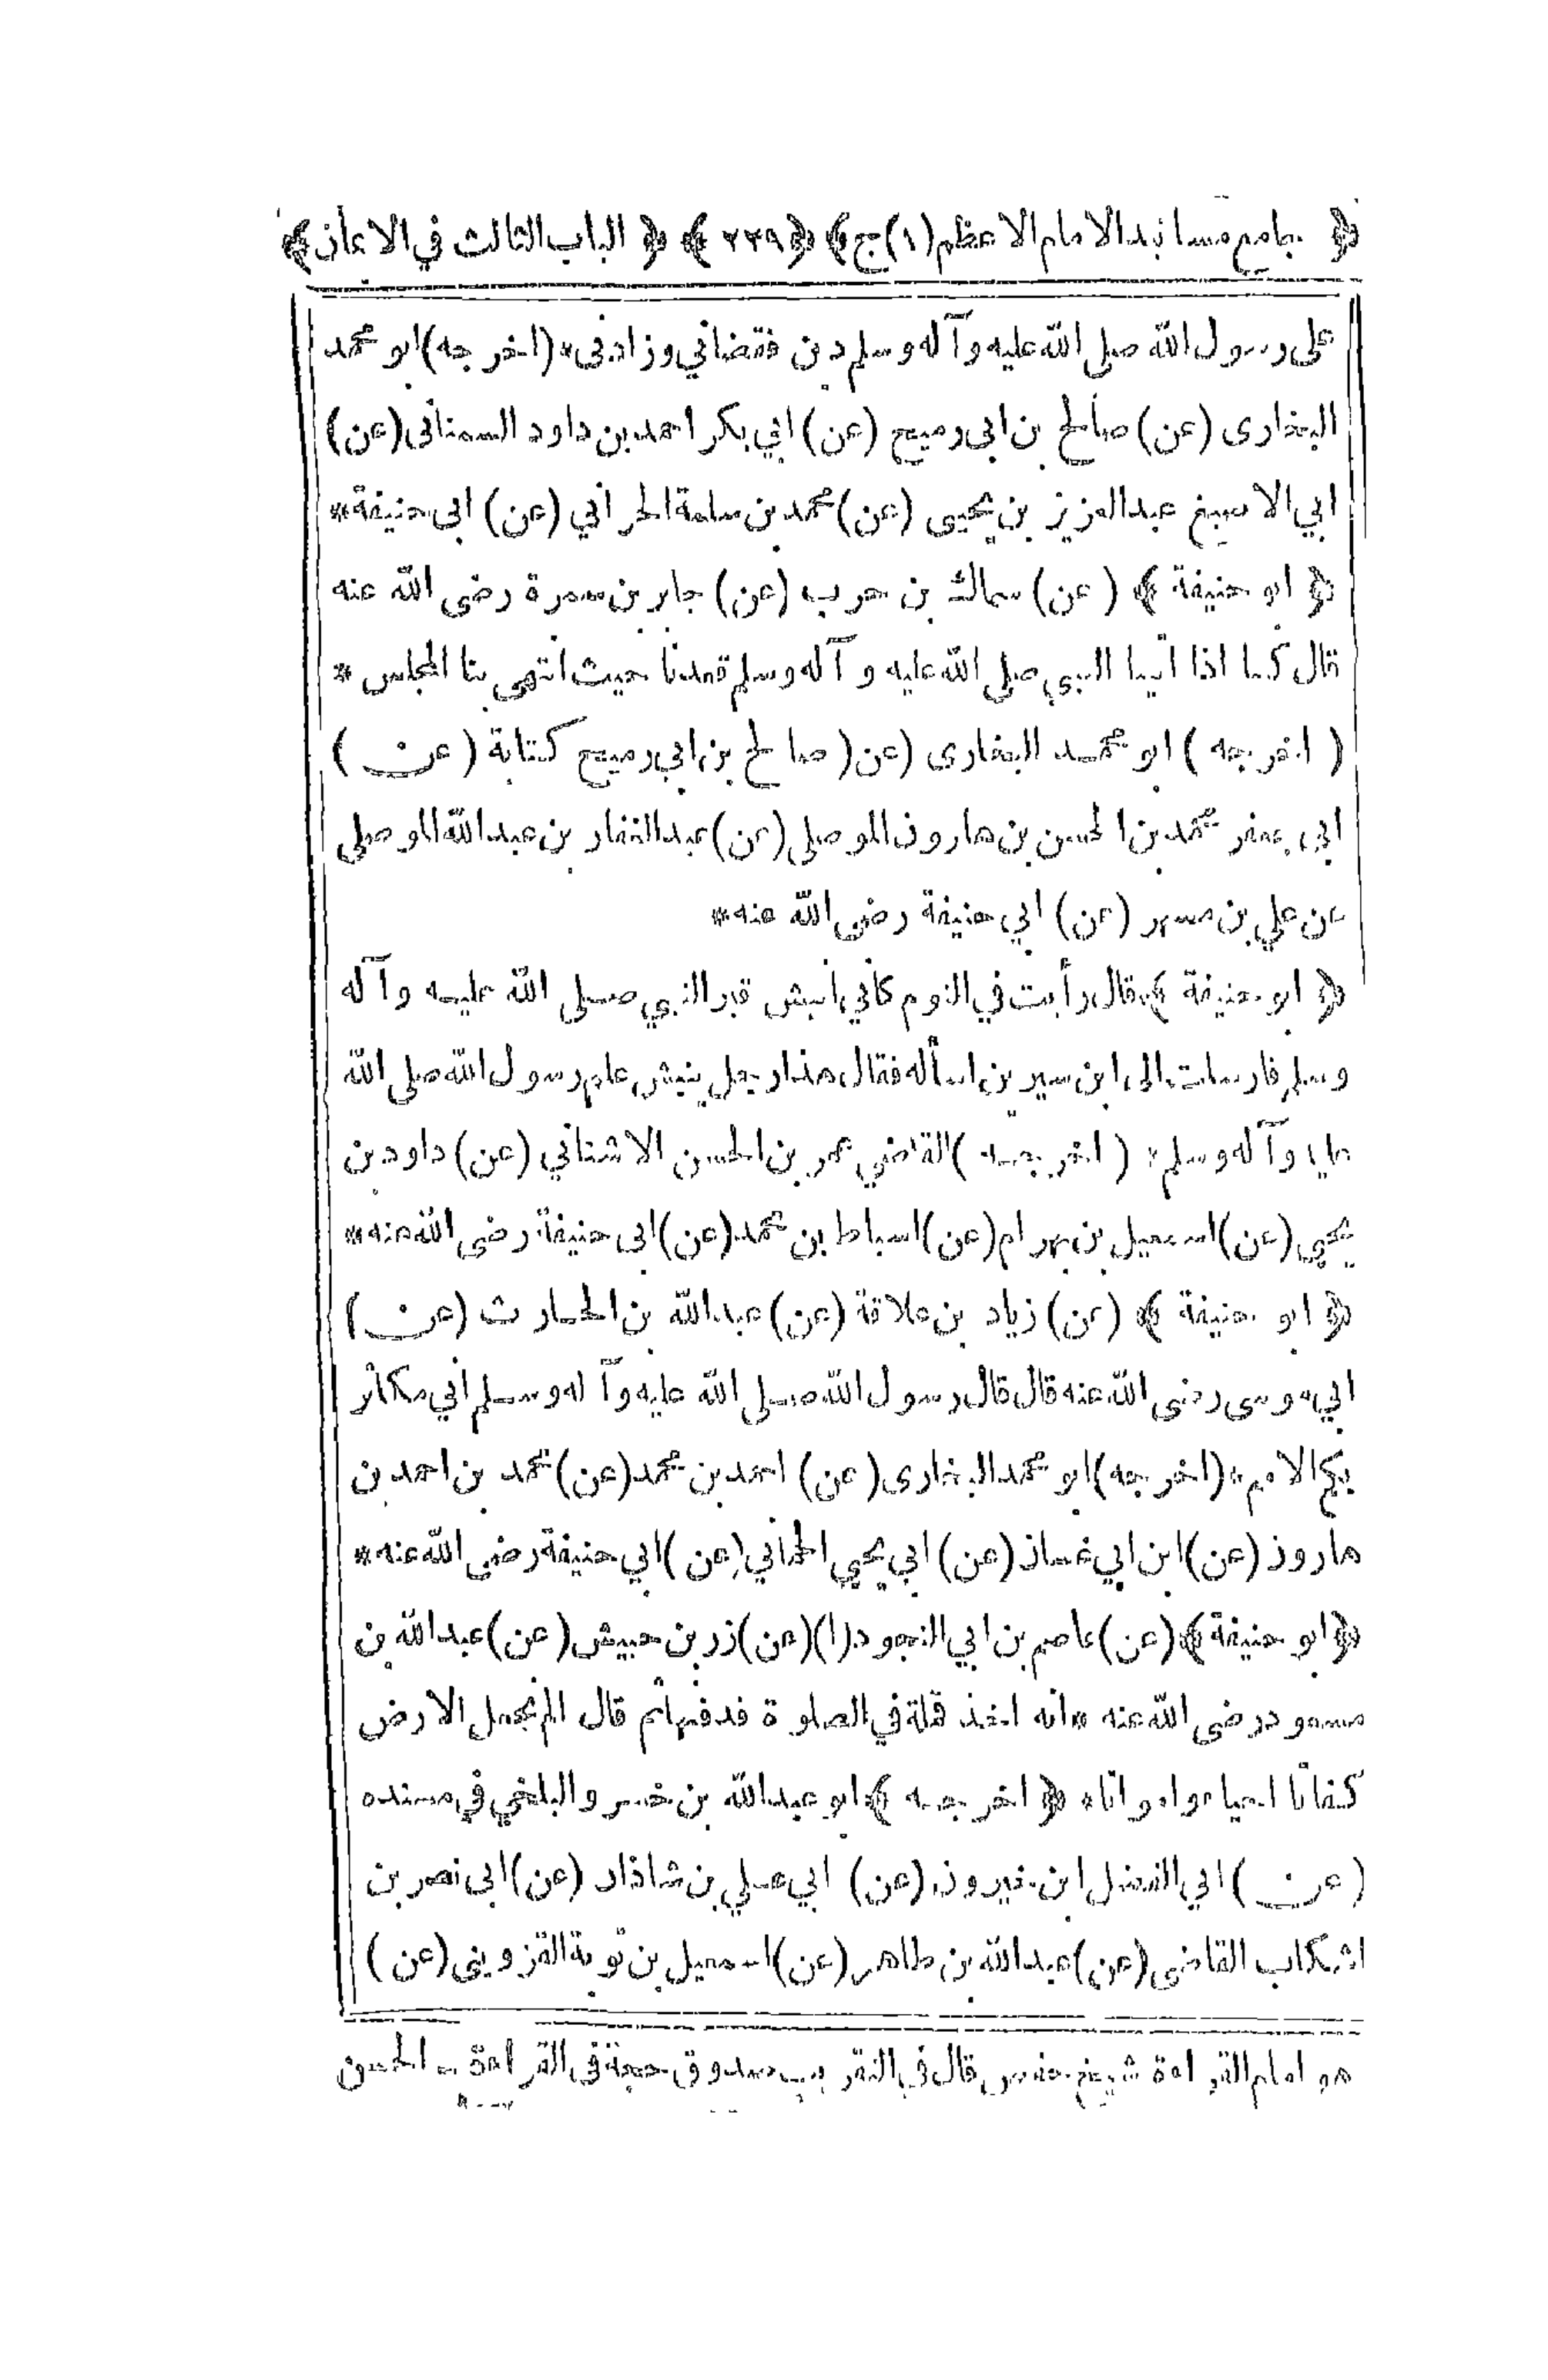 ﴿ جامع مسانيد الامام الاعظم (١) ج ﴾ ﴿ ٢٢٩ ﴾ ﴿ الباب الثالث في الايمان ﴾
على رسول الله صلى الله عليه وآله وسلم دين فقضاني وزادنى * (اخرجه) ابو محمد
البخارى (عن) صالح بن ابى رميح (عن) ابي بكر احمد بن داود السمنانى (عن)
ابي الاصبغ عبد العزيز بن يحيى (عن) محمد بن سلمة الحراني (عن) ابى حنيفة *
﴿ ابو حنيفة ﴾ (عن) سماك بن حرب (عن) جابر بن سمرة رضى الله عنه
قال كنا اذا اتينا النبي صلى الله عليه وآله وسلم قعدنا حيث انتهى بنا المجلس *
( اخرجه ) ابو محمد البخارى (عن) صالح بن ابي رميح كتابة (عن)
ابى جعفر محمد بن الحسن بن هارون الموصلى (عن) عبد الغفار بن عبد الله الموصلى
عن علي بن مسهر (عن) ابي حنيفة رضى الله عنه *
﴿ ابو حنيفة ﴾ قال رأيت في النوم كأني انبش قبر النبي صلى الله عليه وآله
وسلم فارسلت الى ابن سيرين اسأله فقال هذا رجل ينبش علم رسول الله صلى الله
عليه وآله وسلم * ( اخرجه ) القاضي عمر بن الحسن الاشناني (عن) داود بن
يحيى (عن) اسمعيل بن بهرام (عن) اسباط بن محمد (عن) ابى حنيفة رضى الله عنه *
﴿ ابو حنيفة ﴾ (عن) زياد بن علاقة (عن) عبد الله بن الحارث (عن)
ابي موسى رضى الله عنه قال قال رسول الله صلى الله عليه وآله وسلم اني مكاثر
بكم الامم * (اخرجه) ابو محمد البخارى (عن) احمد بن محمد (عن) محمد بن احمد بن
هارون (عن) ابن ابي غسان (عن) ابي يحيى الحماني (عن) ابي حنيفة رضى الله عنه *
﴿ ابو حنيفة ﴾ (عن) عاصم بن ابي النجود (١) (عن) زر بن حبيش (عن) عبد الله بن
مسعود رضى الله عنه * انه اخذ قملة في الصلوة فدفنها ثم قال الم نجعل الارض
كفاتا احياء وامواتا * ﴿ اخرجه ﴾ ابو عبد الله بن خسرو البلخي في مسنده
(عن) ابي الفضل ابن خيرون (عن) ابي علي بن شاذان (عن) ابى نصر بن
اشكاب القاضى (عن) عبد الله بن طاهر (عن) اسمعيل بن توبة القزوينى (عن)
هو امام القراءة شيخ حفص قال في التقريب صدوق حجة فى القراءة - الحسن